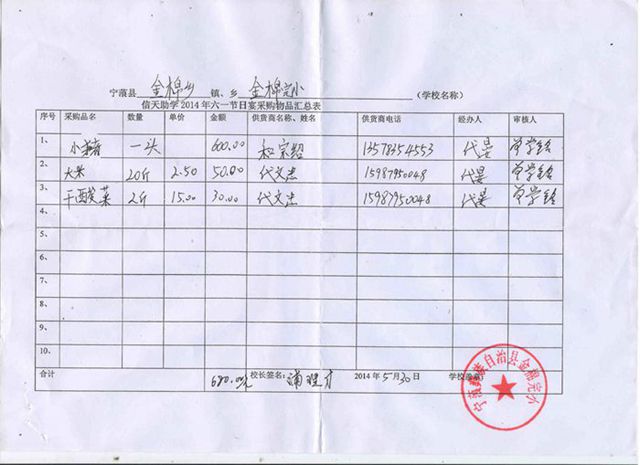 宁蒗县 金棉乡 镇、乡 金棉完小 (学校名称)
信天助学2014年六一节日宴采购物品汇总表
序号 采购品名 数量 单价 金额 供货商名称、姓名 供货商电话 经办人 审核人
1、 小猪 一头 600.00 和宗绍 13578354553 代昱
2、 大米 20斤 2.50 50.00 代文杰 15987950048 代昱
3、 干酸菜 2斤 15.00 30.00 代文杰 15987950048 代昱
4、
5、
6、
7、
8、
9、
10、
合计 680.00元 校长签名: 2014年5月30日 学校盖章:
宁蒗彝族自治县金棉完小